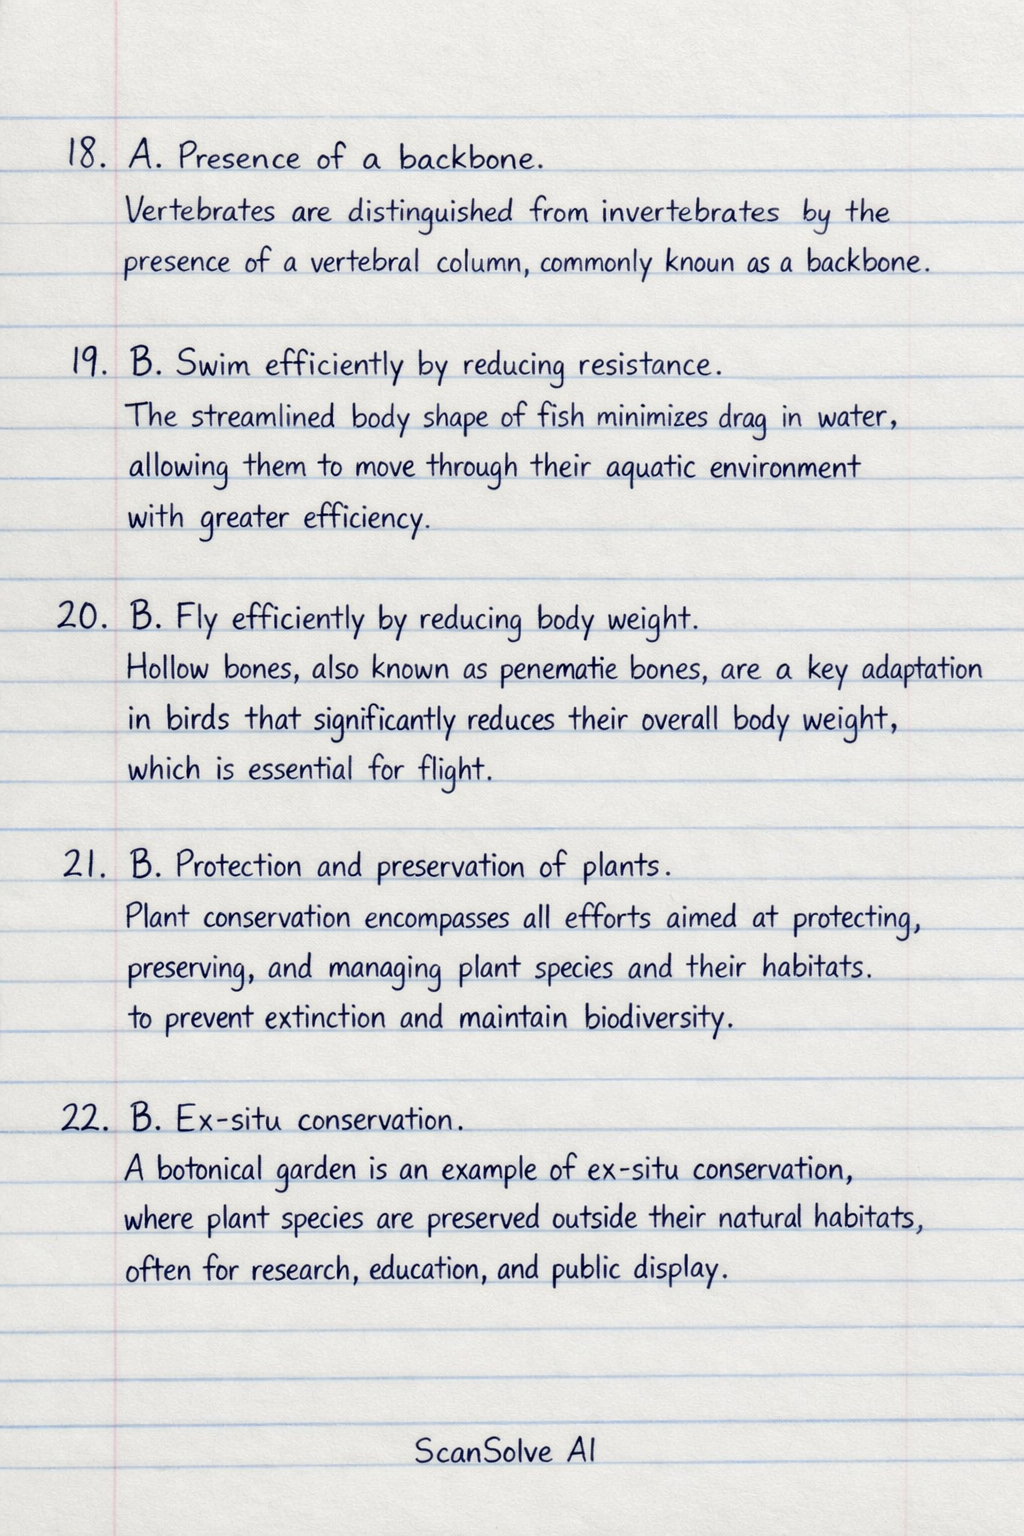 18. A. Presence of a backbone.
Vertebrates are distinguished from invertebrates by the
presence of a vertebral column, commonly knoun as a backbone.
19. B. Swim efficiently by reducing resistance.
The streamlined body shape of fish minimizes drag in water,
allowing them to move through their aquatic environment
with greater efficiency.
20. B. Fly efficiently by reducing body weight.
Hollow bones, also known as penematie bones, are a key adaptation
in birds that significantly reduces their overall body weight,
which is essential for flight.
21. B. Protection and preservation of plants.
Plant conservation encompasses all efforts aimed at protecting,
preserving, and managing plant species and their habitats.
to prevent extinction and maintain biodiversity.
22. B. Ex-situ conservation.
A botonical garden is an example of ex-situ conservation,
where plant species are preserved outside their natural habitats,
often for research, education, and public display.
ScanSolve AI